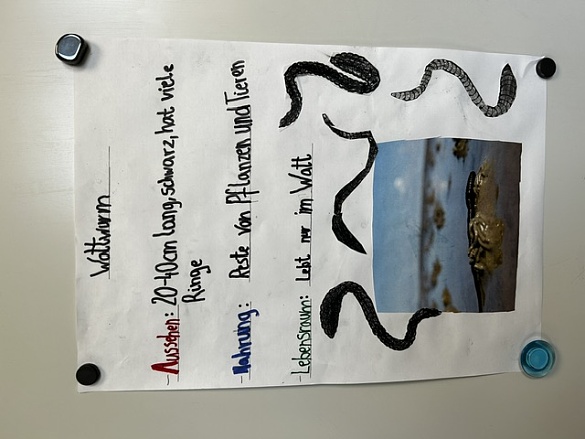 Wattwurm
- Aussehen: 20-40cm lang, schwarz, hat viele
Ringe
- Nahrung: Reste von Pflanzen und Tieren
- Lebensraum: Lebt nur im Watt